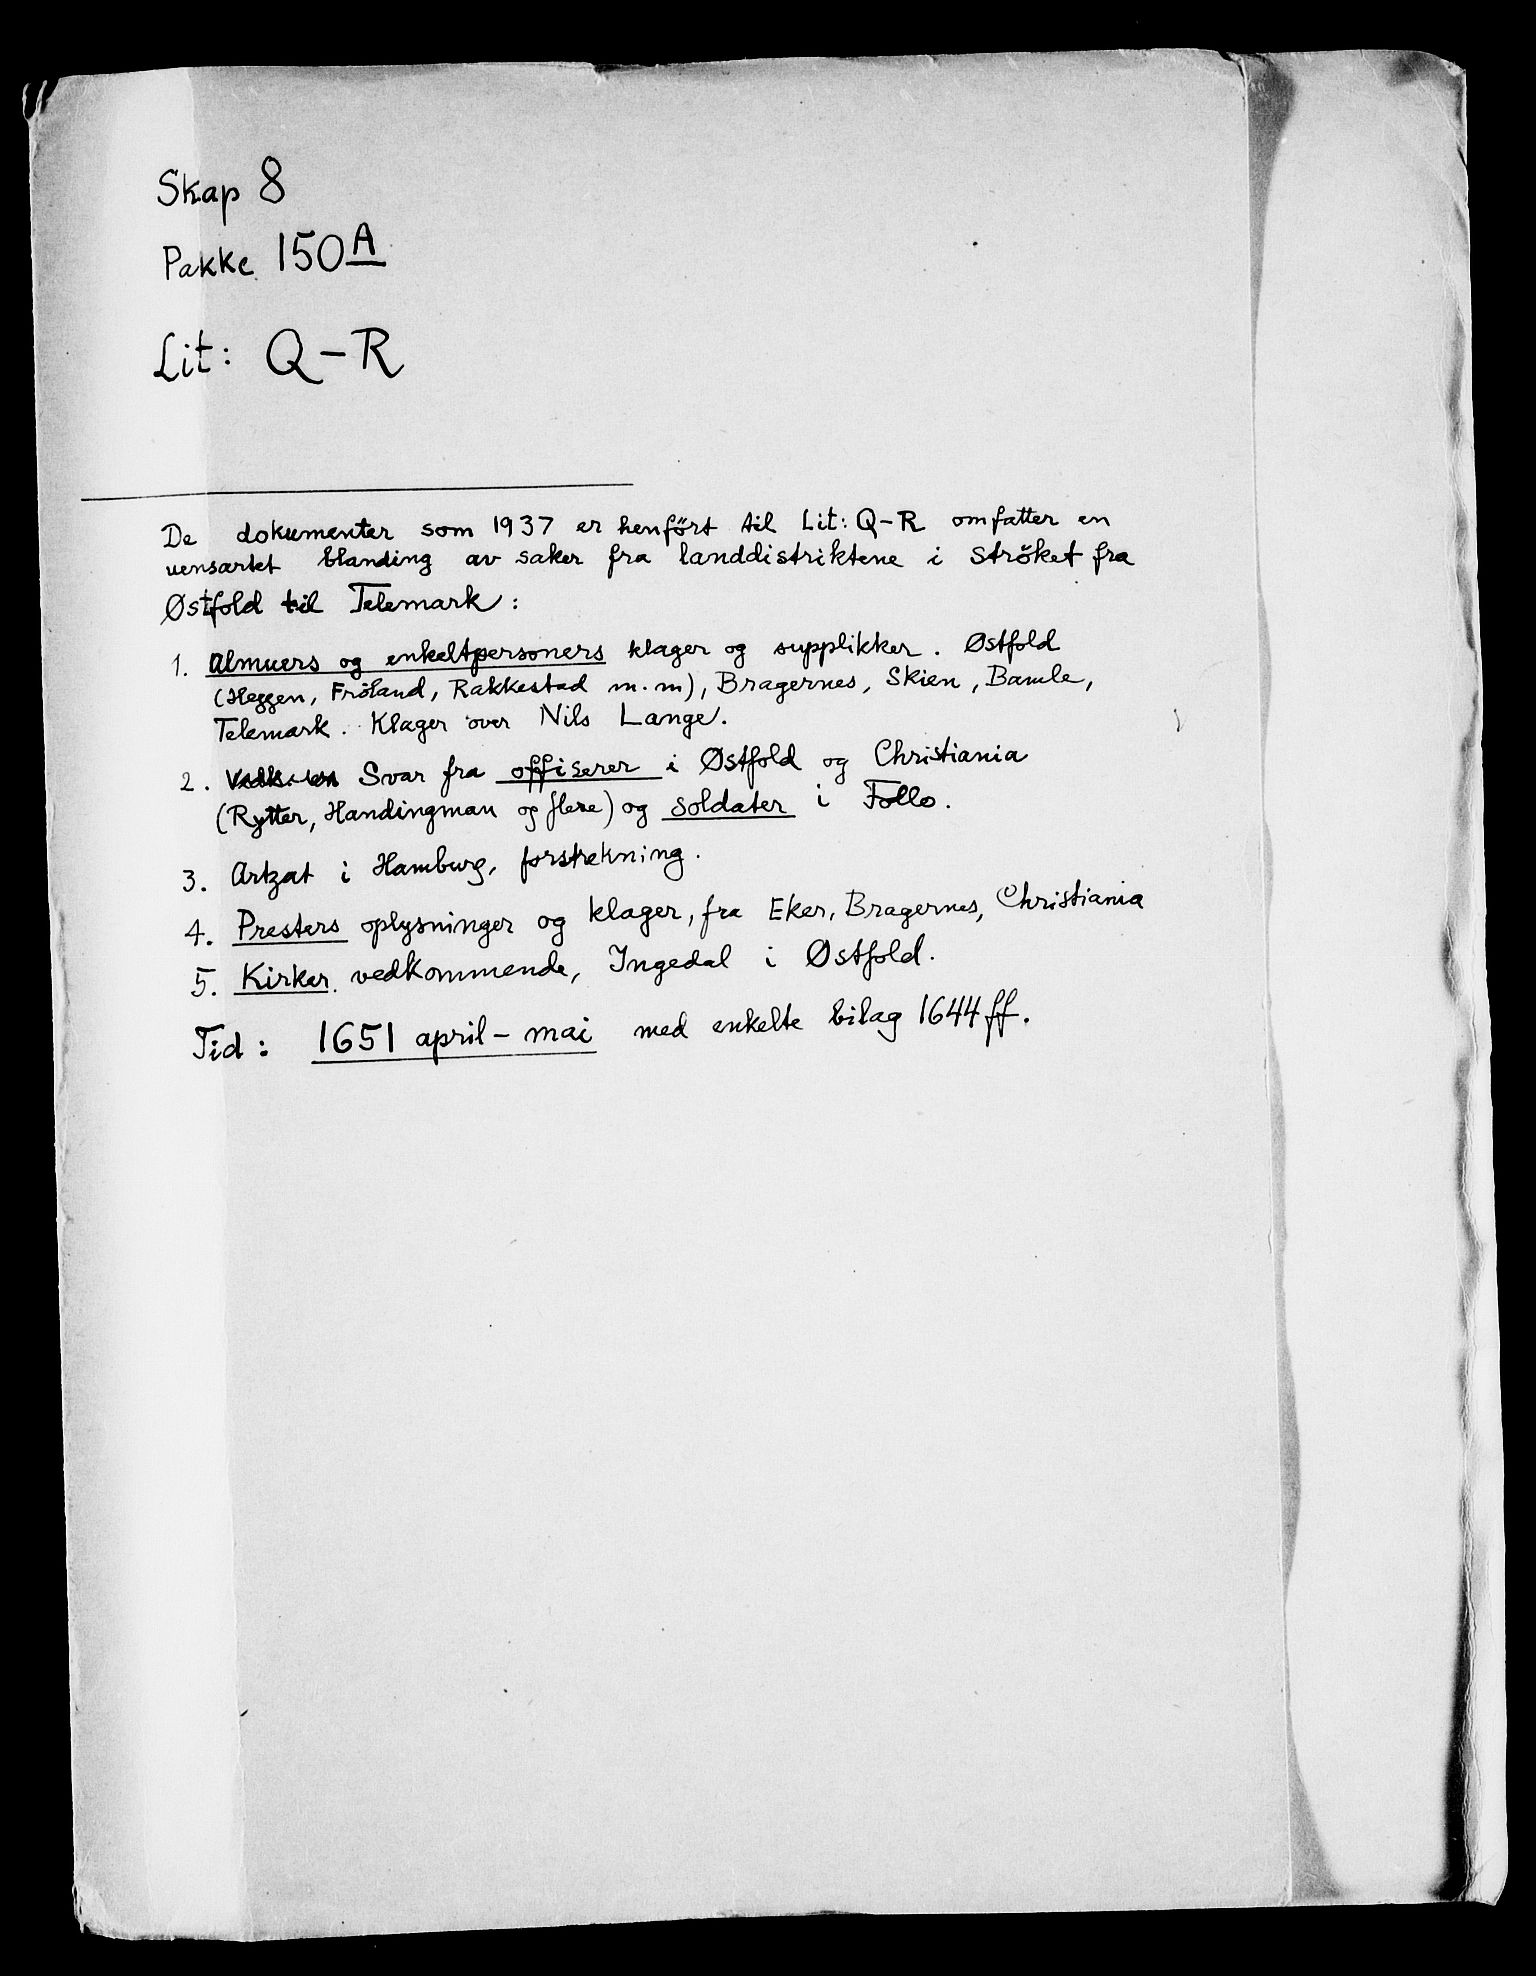 Skap 8
Pakke 150A
Lit: Q-R
De dokumenter som 1937 er henfört til Lit: Q-R omfatter en
uensartet blanding av saker fra landdistriktene i ströket fra
Østfold til Telemark:
1. Almuers og enkeltpersoners klager og supplikker. Østfold
(Heggen, Fröland, Rakkestad m.m), Bragernes, Skien, Bamle,
Telemark. Klager over Nils Lange.
2. Svar fra offiserer i Østfold og Christiania
(Rytter, Handingman og flere) og soldater i Follo.
3. Artzat i Hamburg, forstrekning.
4. Presters oplysninger og klager, fra Eker, Bragernes, Christiania
5. Kirker vedkommende, Ingedal i Østfold.
Tid: 1651 april - mai med enkelte bilag 1644 ff.